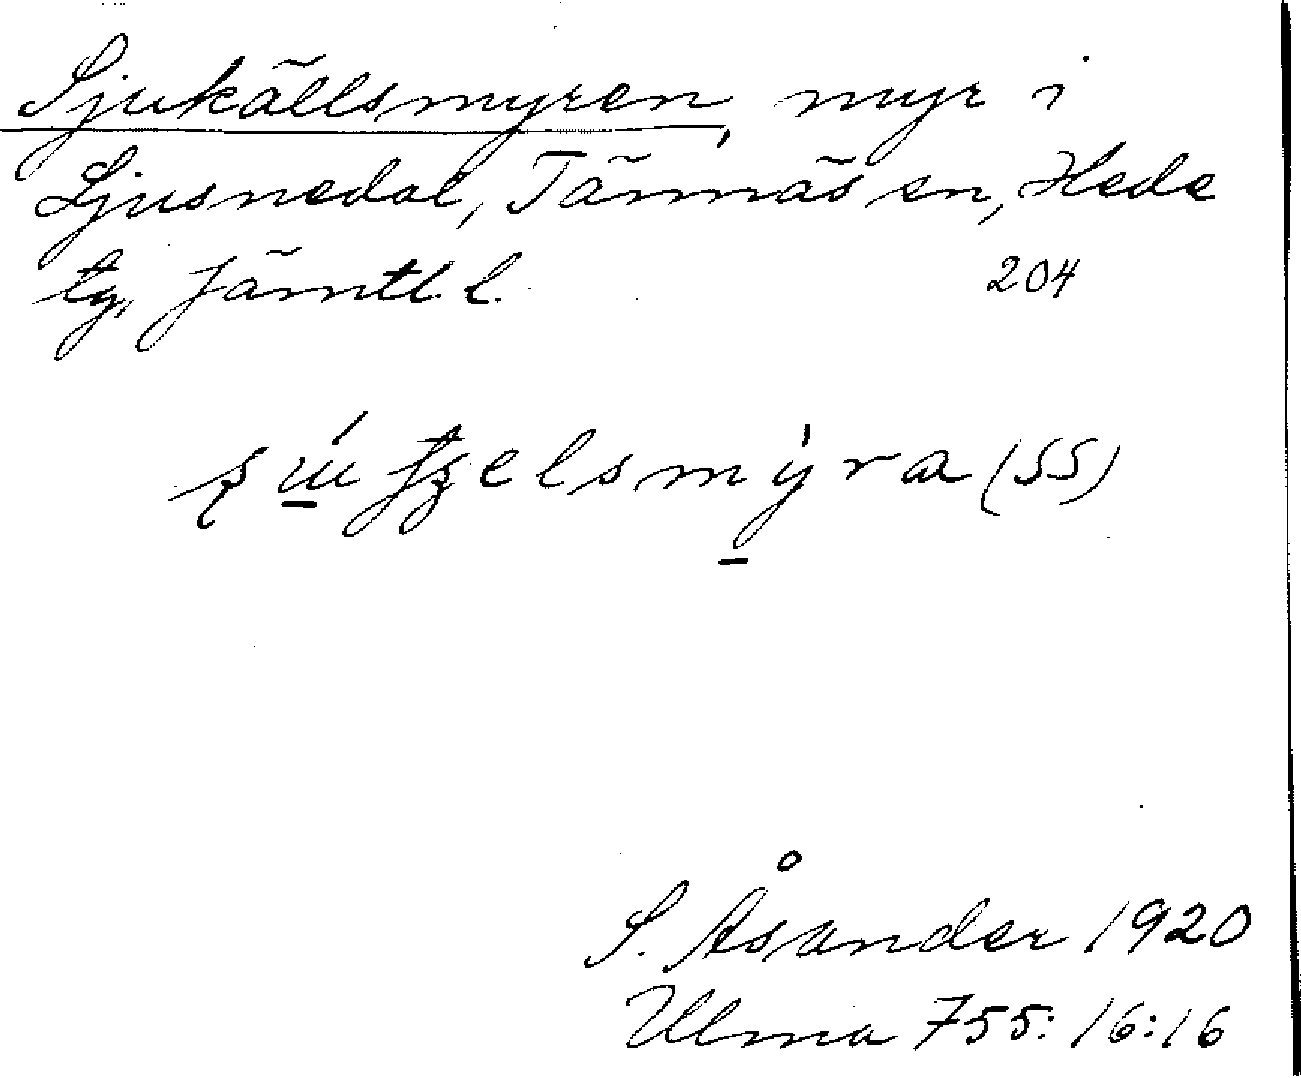 Sjukällsmyren, myr i
Ljusnedal, Tännäs sn, Hede
tg, Jämtl. l. 204
(SS)
S. Åsander 1920
Ulma 755: 16:16